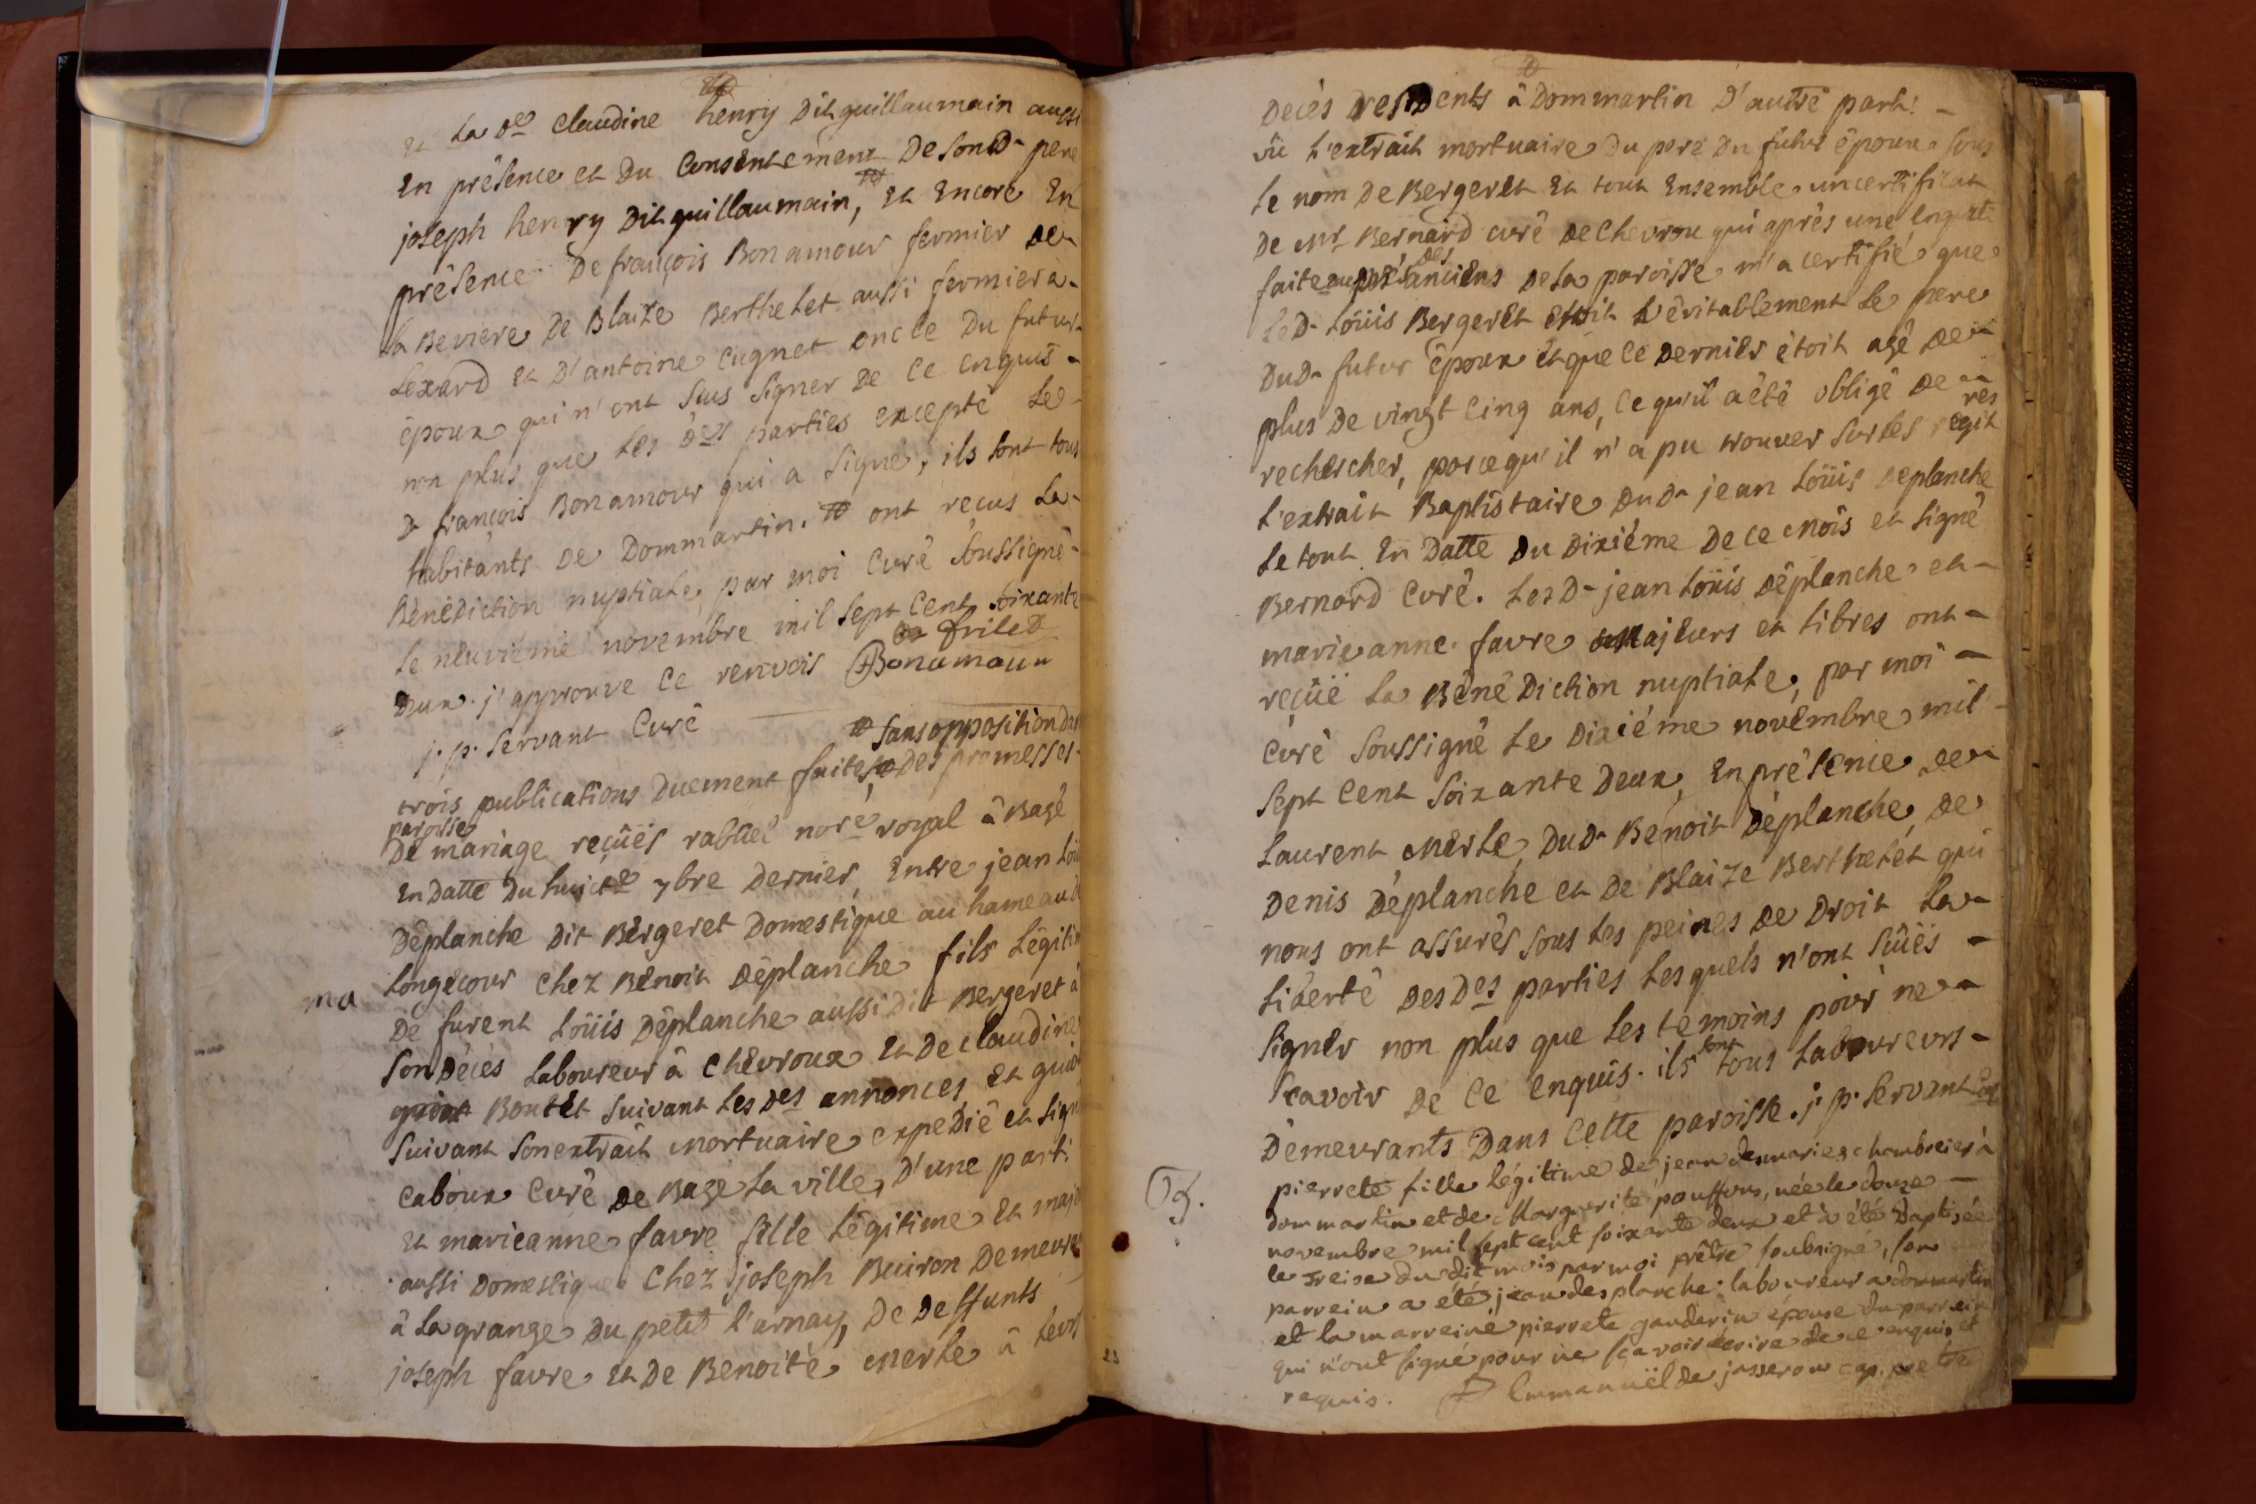 et la de claudine henry dit guillaumain aussi
en présence et du consentement de son d. pere
joseph henry dit guillaumain, et encore en
présence de françois Bonamour fermier de
la Beviere de Blaize Berthelet aussi fermier à
Lexard et d'antoine Cugnet oncle du futur
époux qui n'ont sçus signer de ce enquis
non plus que les des parties excepté le
d. françois Bonamour qui a signé, ils sont tous
habitants de Dommartin. ont recus la
Bénédiction nuptiale, par moi Curé soussigné
le neuvieme novembre mil sept cent soixante
deux. j'approuve ce renvois Bonamour
j. p. servant Curé
sans opposition
trois publications duement faites, des promesses
paroisse
de mariage reçuës rabuel nore royal à Bagé
en datte du huicte 7bre dernier, entre jean loüi
Déplanche dit Bergeret domestique au hameau d
ma
Longecour chez Benoit Déplanche fils légitim
de furent Loüis Déplanche aussi dit Bergeret à
son décès laboureur à Chevroux et de claudine
Boutet suivant les des annonces, et
suivant son extrait mortuaire expedié et sign
Caboux Curé de Bagé la ville, d'une part:
et marieanne favre fille légitime et maj
aussi domestique chez joseph Buiron demeur
à la grange du petit l'arnay, de deffunts
joseph favre et de Benoite Merle à leur
23
décès residents à Dommartin d'autre part:
vû l'extrait mortuaire du pere du futur époux sous
le nom de Bergeret et tout ensemble un certificat
de Mr Bernard curé de Chevrou qui après une enquete
faite auprès des anciens de la paroisse m'a certifié que
le d. Loüis Bergeret etoit véritablement le pere
du d. futur époux et que ce dernier étoit agé de
plus de vingt cinq ans, ce qu'il a été obligé de
rechercher, parcequ'il n'a pu trouver sur les regit res
l'extrait Baptistaire du d. jean Loüis déplanche
le tout en datte du dixiéme de ce mois et signé
Bernard Curé. Les d. jean Loüis Déplanche et
marieanne favre majeurs et libres ont
reçüe la Bénédiction nuptiale, par moi
Curé soussigné le dixiéme novembre mil
sept cent soixante deux, en présence de
Laurent Merle, du d. Benoit Déplanche, de
Denis Déplanche et de Blaize Berthelet qui
nous ont assurés sous les peines de droit la
liberté des des parties lesquels n'ont sûës
signer non plus que les temoins pour ne
sçavoir de ce enquis. ils sont tous laboureurs
demeurants dans cette paroisse. j. p. servant Curé
pierrete fille légitime de jean desmaries chambreier à
dommartin et de Marguerite pouffvus, née le douze
novembre mil sept cent soixante deux et à été Baptisée
le treise dudit mois par moi prêtre soubsigné, son
parrein a été jean desplanche laboureur a dommartin
et la marreine pierrete gauderin épouse du parrein
qui n'ont signé pour ne sçavoir écrire de ce enquis et
requis. P Emmanuël de jasseron cap. pretre